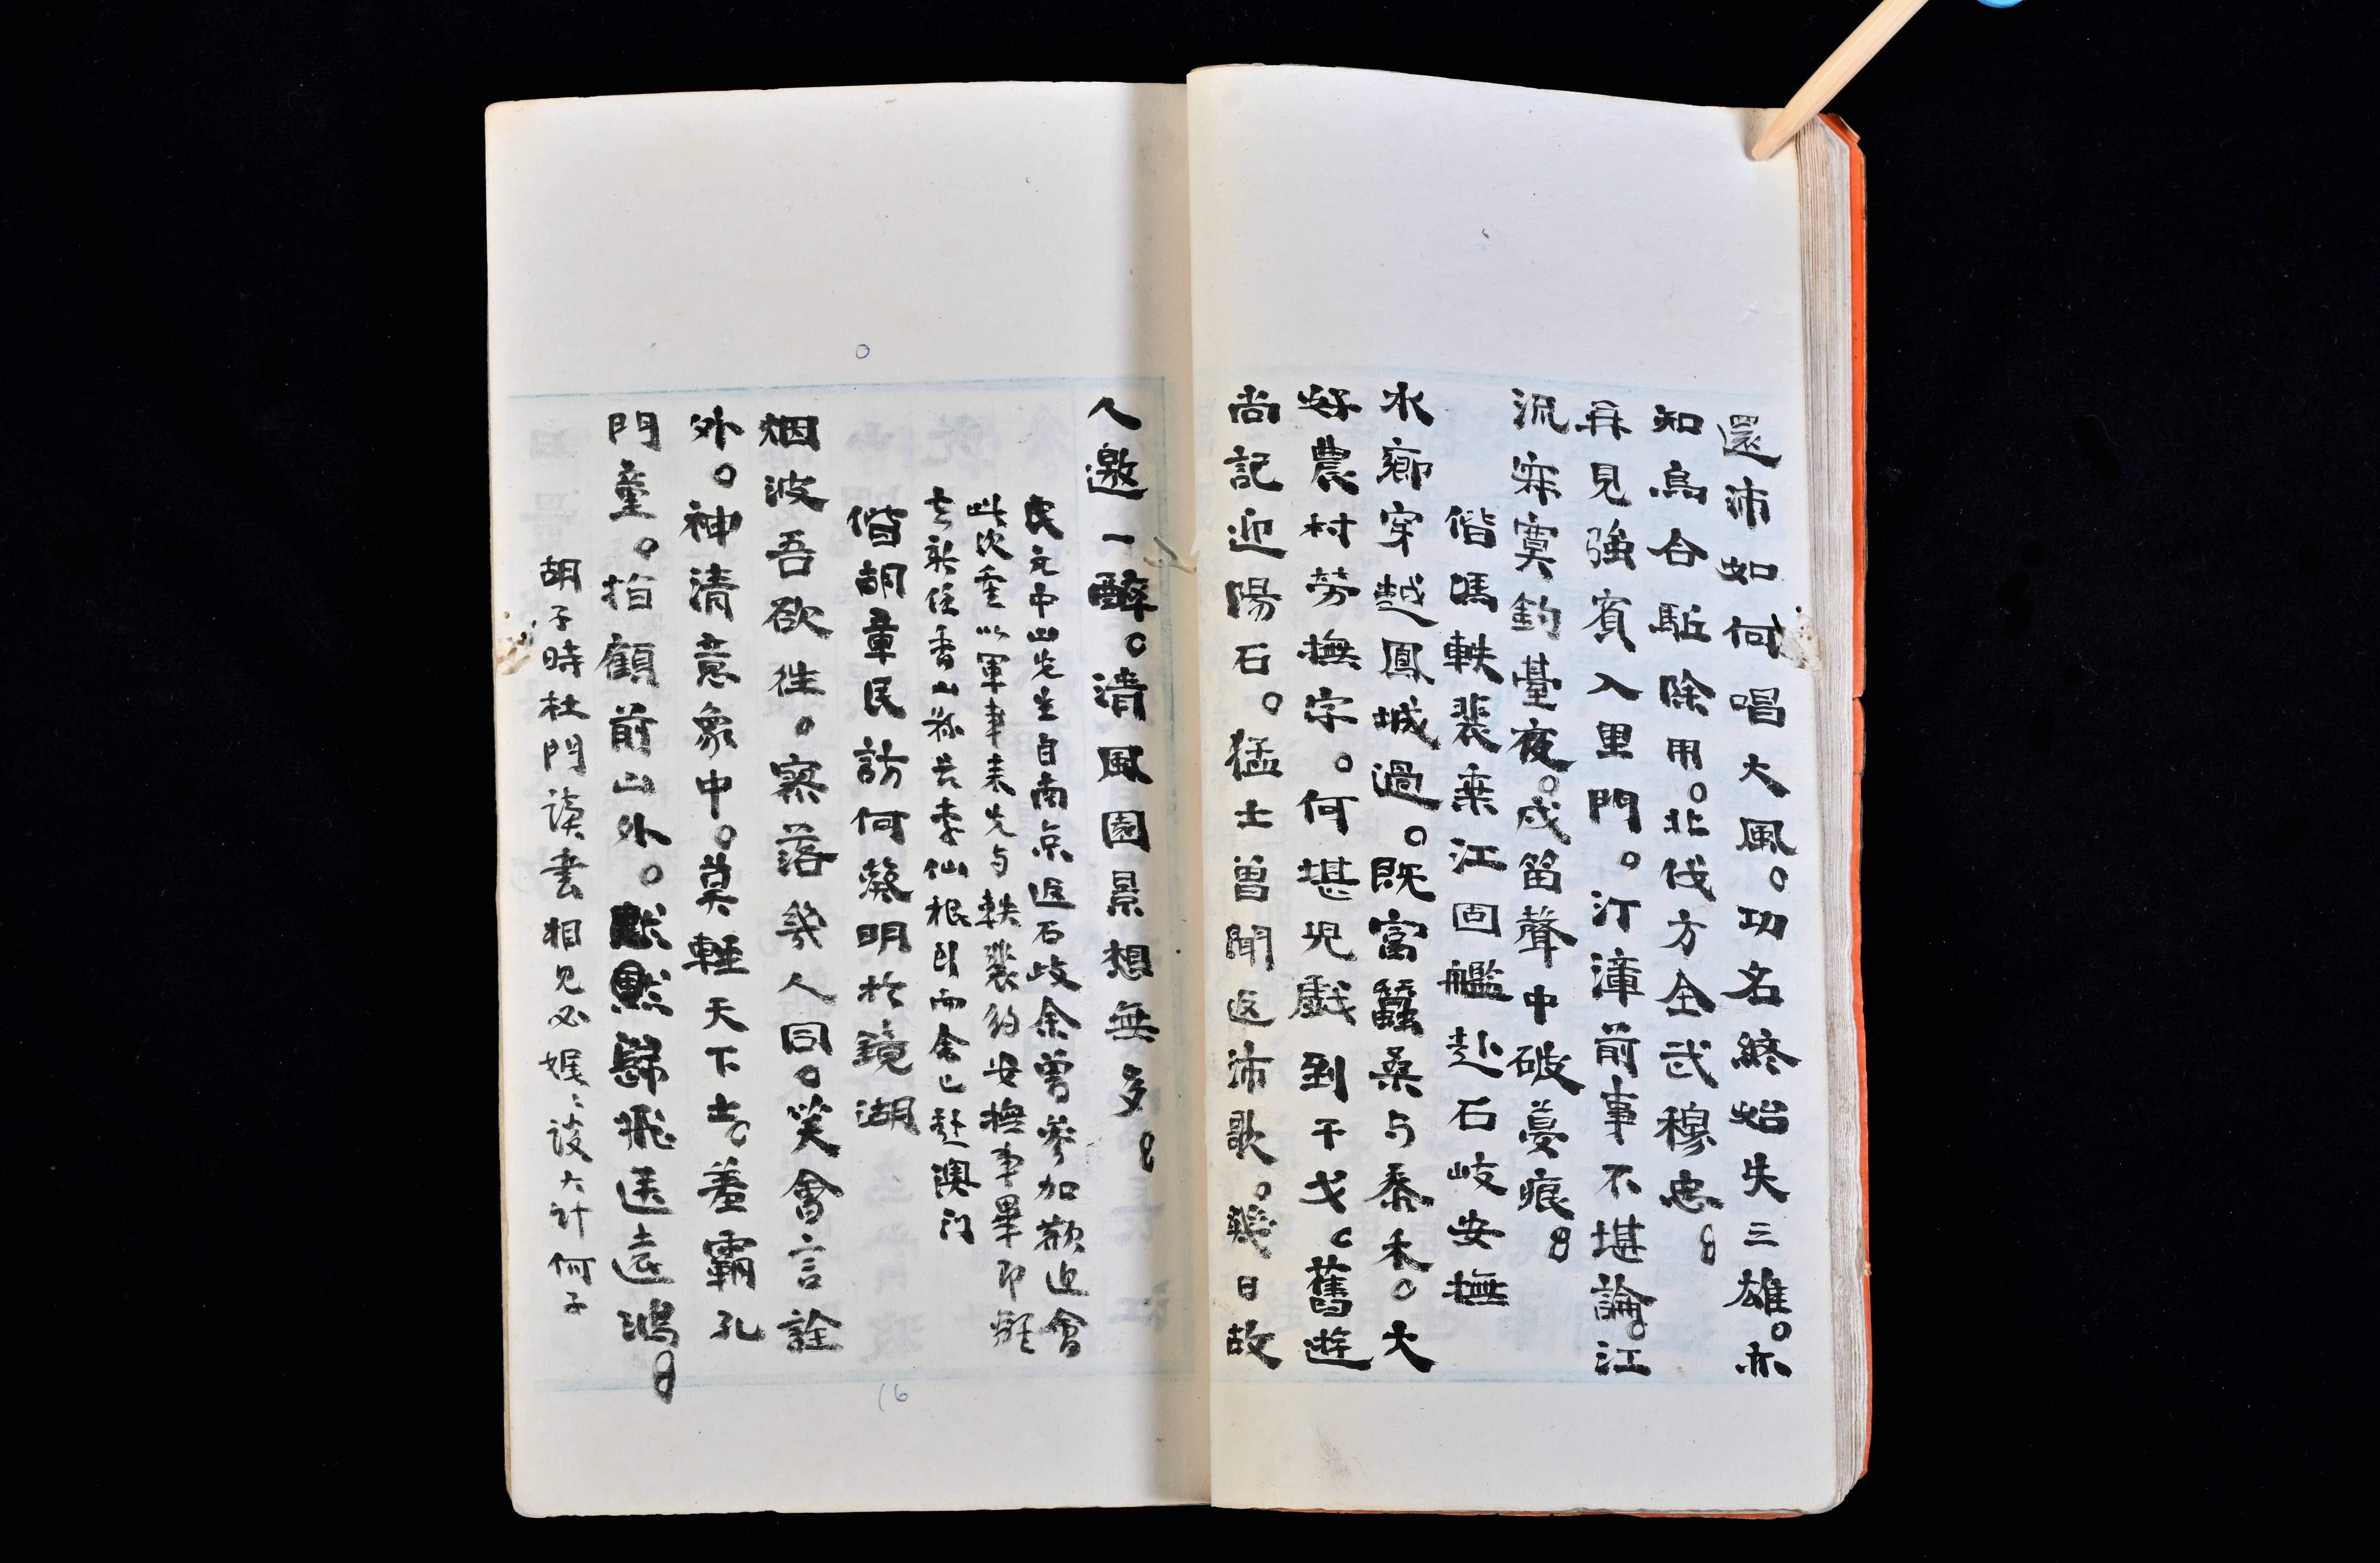 還沛如何唱大風。功名終始失三雄。亦
知烏合駈除用。北伐方全武穆忠。
再見強賓入里門。汀漳前事不堪論。江
流寂寞釣臺夜。戍笛聲中破夢痕。
偕馮軼裴乘江固艦赴石岐安撫
水鄉穿越鳳城過。既富蠶桑与黍禾。大
好農村勞撫字。何堪児戲到干戈。舊遊
尚記迎陽石。猛士曽聞返沛歌。幾日故
人邀一醉。清風園景想無多。
民元中山先生自南京返石岐余曽參加歡迎會
此次重以軍事来先与軼裴約安撫事畢即辭
去新任香山縣長李仙根自而余已赴澳门
偕胡章民訪何葵明於鏡湖
烟波吾欲往。寥落幾人同。笑會言詮
外。神清意象中。莫輕天下士。羞霸孔
門童。指顧前山外。默默歸飛送遠鴻。
胡子時杜門讀書相見必娓娓談大计何子
(6